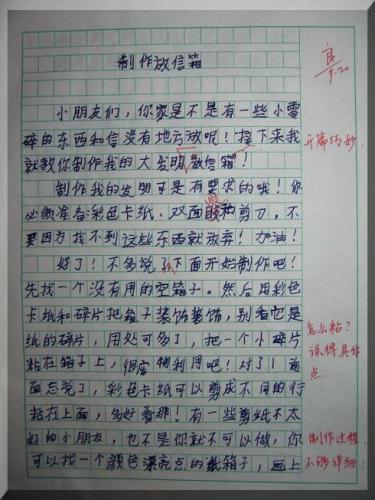 制作放信箱
良
9.20
小朋友们，你家是不是有一些小零
碎的东西和信没有地方放呢？接下来我
就教你制作我的大发明放信箱！
开篇巧妙
制作我的发明可是有要求的哦！你
必须准备彩色卡纸、双面胶和剪刀，不
要因为找不到这些东西就放弃！加油！
好了！不多说了下面开始制作吧！
先找一个没有用的空箱子。然后用彩色
卡纸和碎片把箱子装饰装饰，别看它是
纸的碎片，用处可多了，把一个小碎片
怎么粘？
粘在箱子上，很废物利用吧！对了！前
说得具体
点
面忘说了，彩色卡纸可以剪成不同的行
粘在上面，多好看那！有一些剪纸不太
好的小朋友，也不是你就不可以做，你
制作过程
可以找一个颜色漂亮点的纸箱子，画上
不够详细